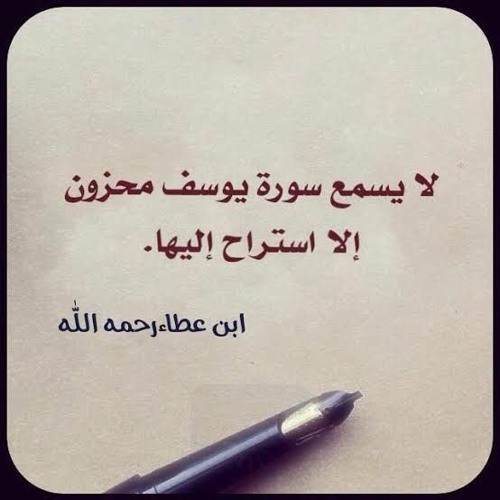 لا يسمع سورة يوسف محزون
إلا استراح إليها.
ابن عطاء رحمه الله